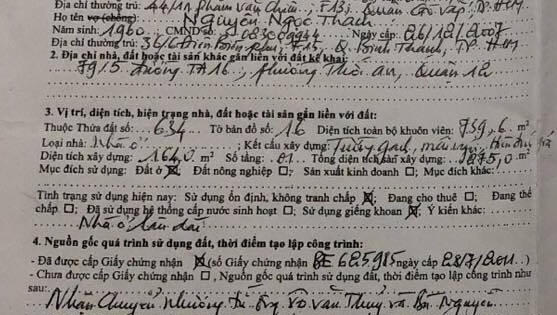 Địa chỉ thường trú: 44/11 Phạm Văn Chiêu, F13, Quận Gò Vấp, TP. HCM
Họ tên vợ (chồng): Nguyễn Ngọc Thanh
Năm sinh: 1960. CMND số: 083009944 Ngày cấp: 06/10/2007
Địa chỉ thường trú: 36/6 Điện Biên Phủ, F15, Q Bình Thạnh, TP. HCM
2. Địa chỉ nhà, đất hoặc tài sản khác gắn liền với đất kê khai:
79/5 Đường TA16, Phường Thới An, Quận 12
3. Vị trí, diện tích, hiện trạng nhà, đất hoặc tài sản gắn liền với đất:
Thuộc Thửa đất số: 634 Tờ bản đồ số: 16 Diện tích toàn bộ khuôn viên: 759,6 m²
Loại nhà: Nhà ở; Kết cấu xây dựng: Tường gạch, mái
Diện tích xây dựng: 164,0 m² Số tầng: 01 Tổng diện tích sàn xây dựng: m²
Mục đích sử dụng: Đất ở ☒; Đất nông nghiệp ☐; Sản xuất kinh doanh ☐; Mục đích khác:
Tình trạng sử dụng hiện nay: Sử dụng ổn định, không tranh chấp ☒; Đang cho thuê ☐; Đang thế
chấp ☐; Đã sử dụng hệ thống cấp nước sinh hoạt ☐; Sử dụng giếng khoan ☒; Ý kiến khác:
Nhà ở lâu dài
4. Nguồn gốc quá trình sử dụng đất, thời điểm tạo lập công trình:
- Đã được cấp Giấy chứng nhận ☒ (số Giấy chứng nhận BE 685985 ngày cấp 28/7/2011)
- Chưa được cấp Giấy chứng nhận ☐, Nguồn gốc quá trình sử dụng đất, thời điểm tạo lập công trình như
sau: Nhận chuyển nhượng từ ông Võ Văn Thủy và Bà Nguyễn